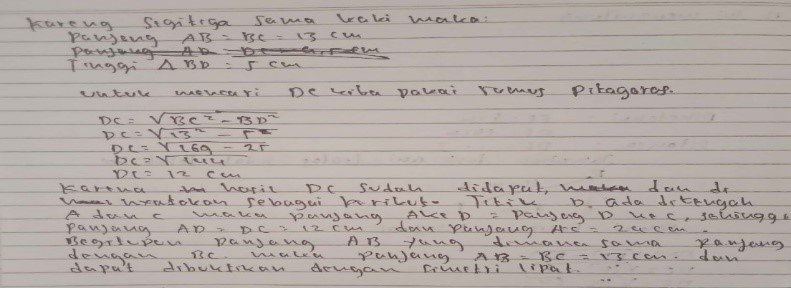 Karena segitiga sama kaki maka:
Panjang AB = BC = 13 cm
Panjang AD = DC =
Tinggi Δ BD = 5 cm
untuk mencari DC kita pakai rumus Pitagoras.
DC = √BC² - BD²
DC = √13² - 5²
DC = √169 - 25
DC = √144
DC = 12 cm
Karena hasil DC sudah didapat, dan di
nyatakan sebagai berikut. Titik D ada ditengah
A dan C maka panjang A ke D = panjang D ke C, sehingga
Panjang AD = DC = 12 cm dan panjang AC = 24 cm.
Begitupun panjang AB yang dimana sama panjang
dengan BC. maka panjang AB = BC = 13 cm. dan
dapat dibuktikan dengan simetri lipat.